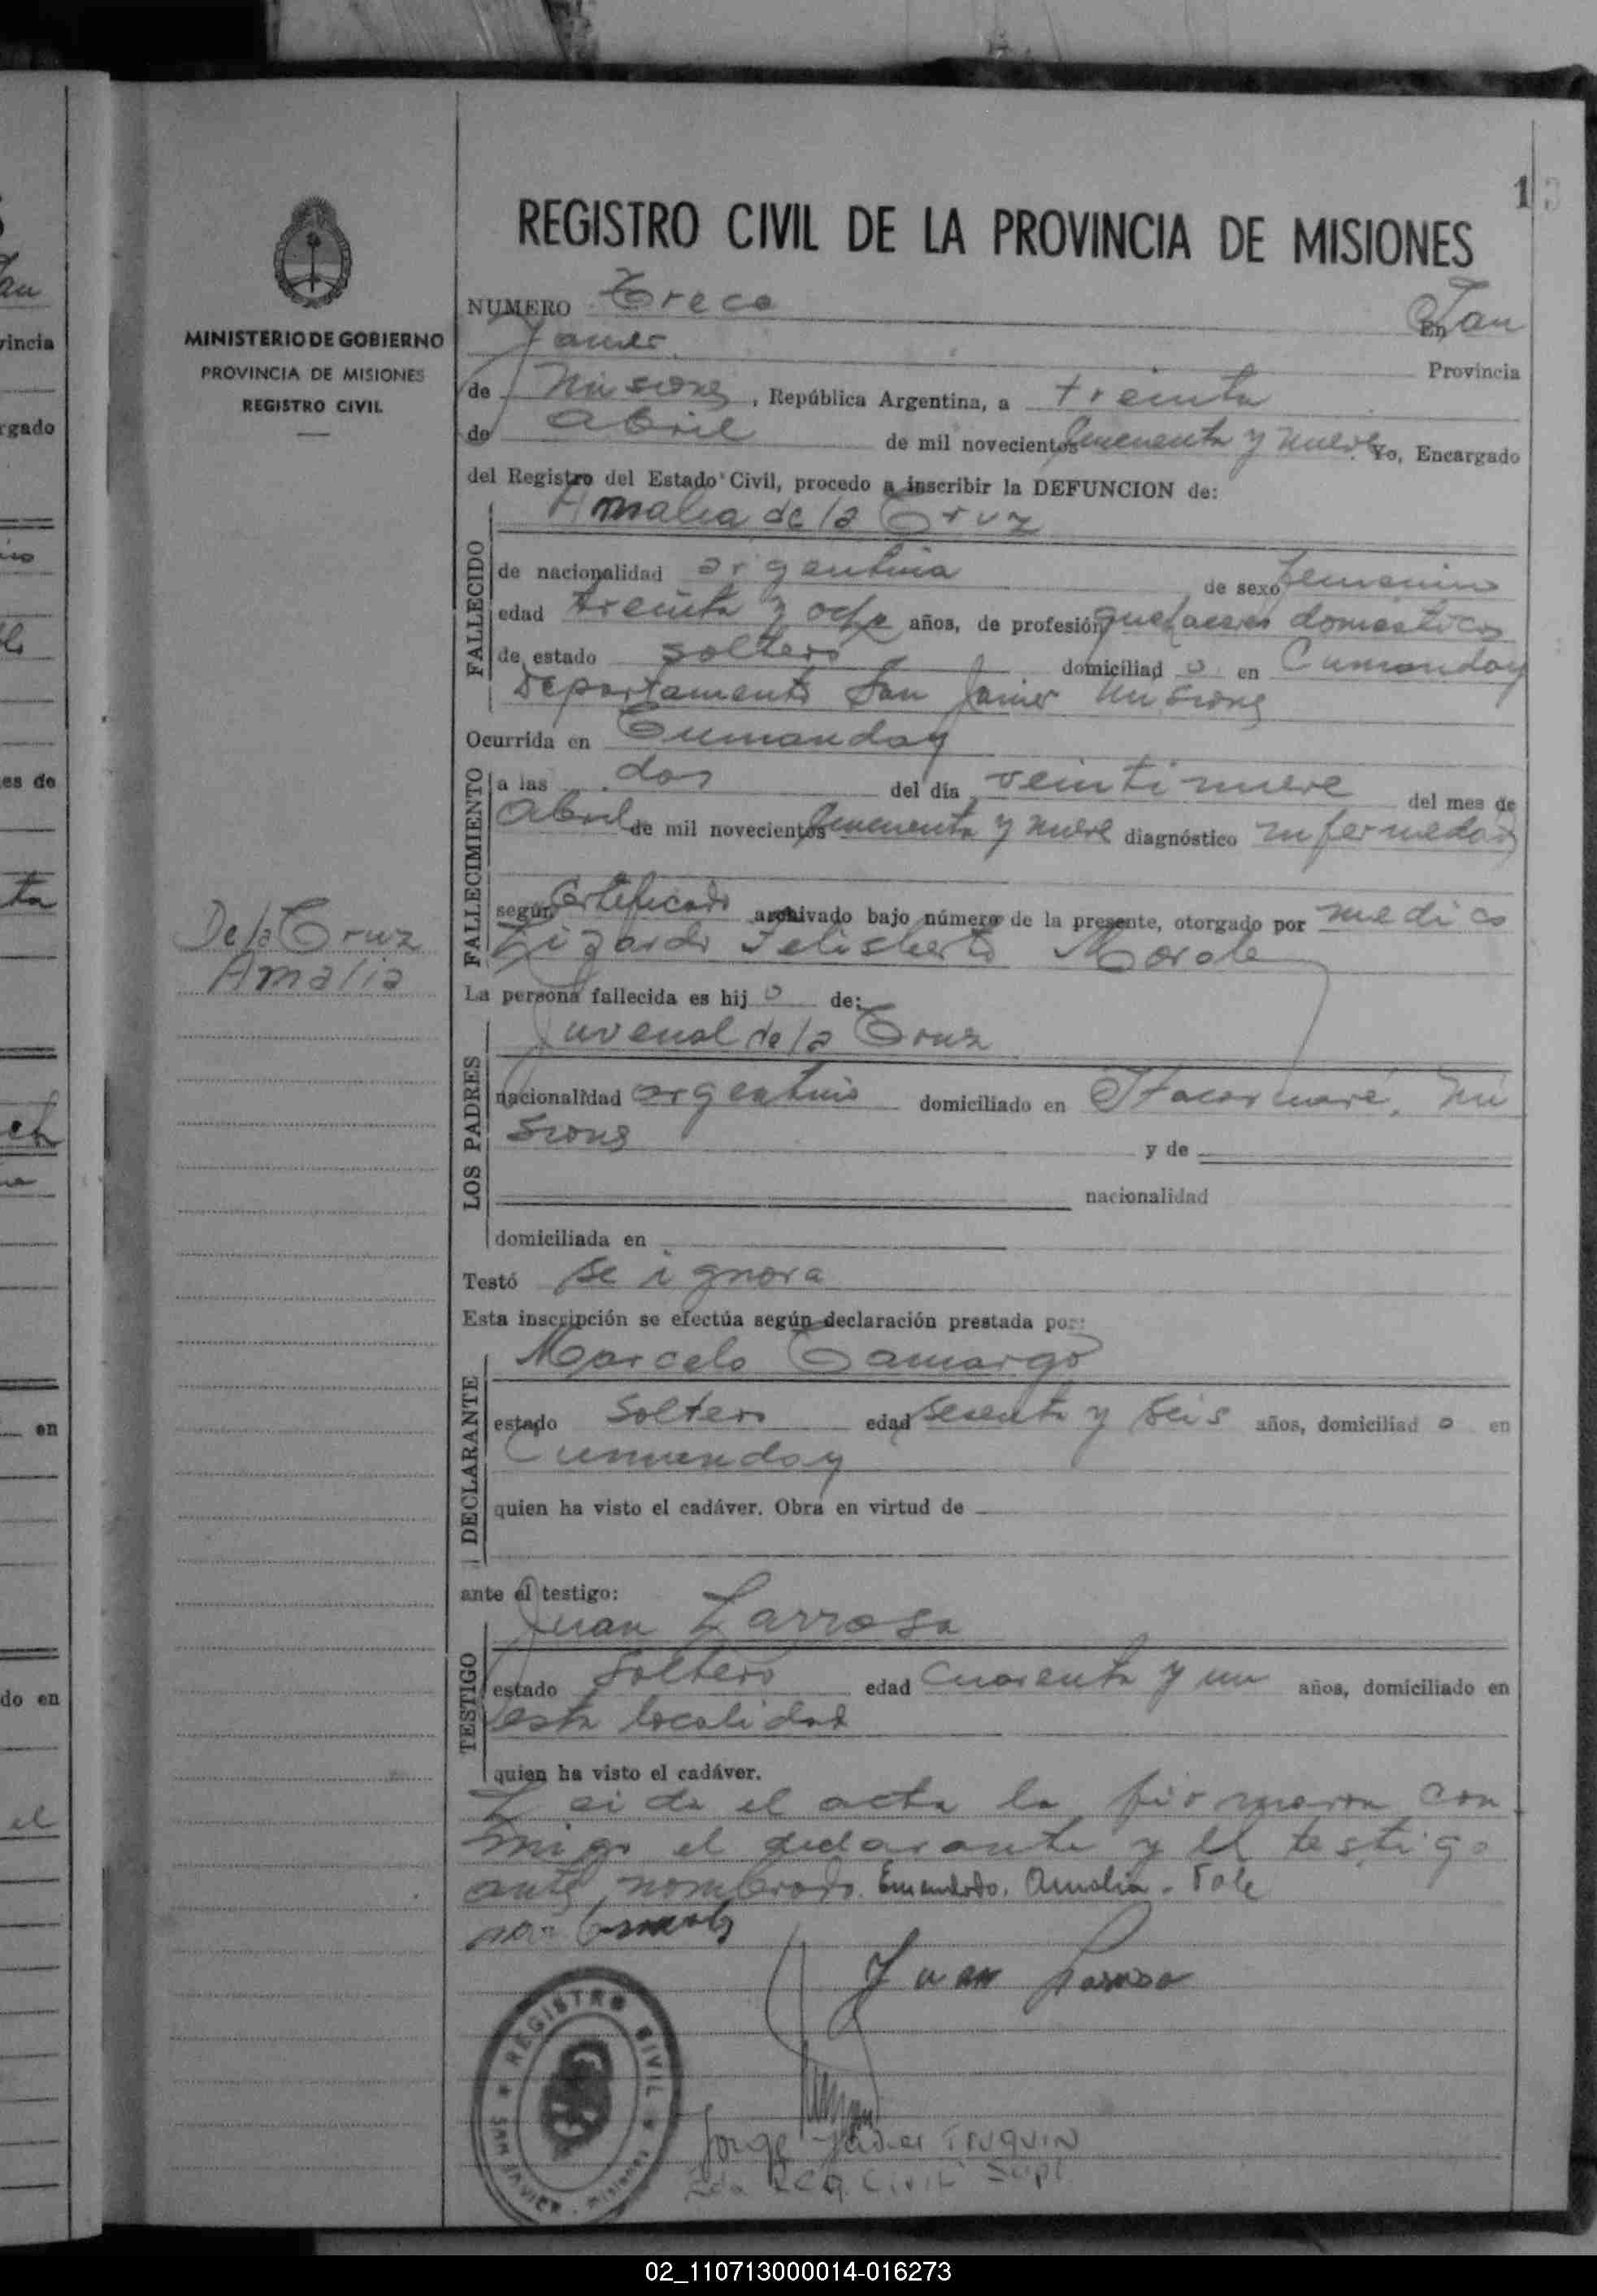 13
REGISTRO CIVIL DE LA PROVINCIA DE MISIONES
MINISTERIO DE GOBIERNO
PROVINCIA DE MISIONES
REGISTRO CIVIL
NUMERO Trece En San
Javier Provincia
de Misiones, República Argentina, a treinta
de abril de mil novecientos cincuenta y nueve Yo, Encargado
del Registro del Estado Civil, procedo a inscribir la DEFUNCION de:
Amalia de la Cruz
FALLECIDO
de nacionalidad argentina de sexo femenino
edad treinta y ocho años, de profesión quehaceres domesticos
de estado soltero domiciliad o en Cumanday
Departamento San Javier Misiones
Ocurrida en Cumanday
FALLECIMIENTO
a las dos del día veintinueve del mes de
abril de mil novecientos cincuenta y nueve diagnóstico enfermedad
según certificado archivado bajo número de la presente, otorgado por medico
Lizardo Felisberto Morale
De la Cruz
Amalia
La persona fallecida es hij o de:
Juvenal de la Cruz
LOS PADRES
nacionalidad argentino domiciliado en Itacaruaré, Mi
siones y de
nacionalidad
domiciliada en
Testó se ignora
Esta inscripción se efectúa según declaración prestada por:
Marcelo Camargo
DECLARANTE
estado soltero edad sesenta y seis años, domiciliad o en
Cumanday
quien ha visto el cadáver. Obra en virtud de
ante el testigo:
Juan Larrosa
TESTIGO
estado soltero edad cuarenta y un años, domiciliado en
esta localidad
quien ha visto el cadáver.
Leida el acta la firmaron con
migo el declarante y el testigo
antes nombrado. Enmendado. Amalia. Vale
Juan Larrosa
REGISTRO CIVIL
SAN JAVIER - Misiones
Jorge Javier TRUQUIN
Reg. Civil Supl.
02_110713000014-016273